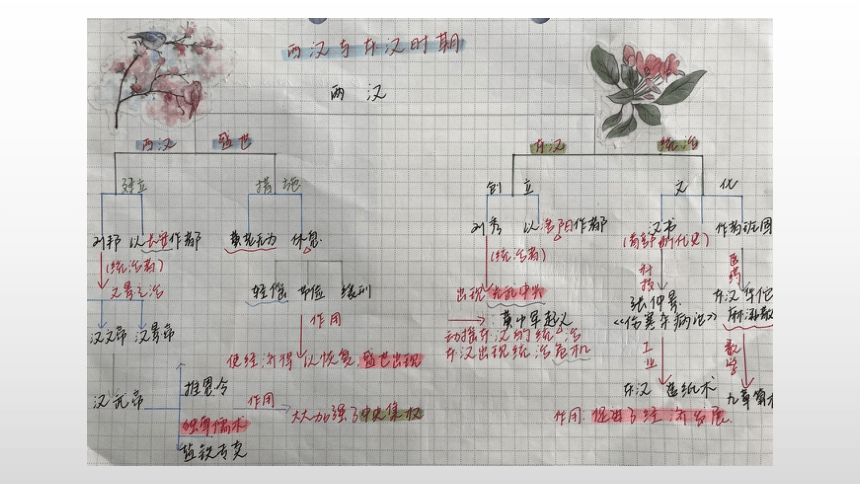 西汉与东汉时期
两汉
西汉 盛世
东汉 统治
建立
措施
创立
文化
刘邦 以长安作都
黄老无为 休息
刘秀 以洛阳作都
汉书 作者班固
(统治者)
(统治者)
科技
医药
文景之治
轻徭 薄
出现
张仲景
东汉华佗
麻沸散
汉文帝 汉景帝
作用
黄巾军起义
《伤寒杂病论》
动摇东汉的统治
东汉出现统治危机
工业
数学
使经济得以恢复 盛世出现
汉武帝
推恩令
作用
大大加强了中央集权
东汉 造纸术
九章算术
独尊儒术
盐铁专卖
作用:促进了经济发展.